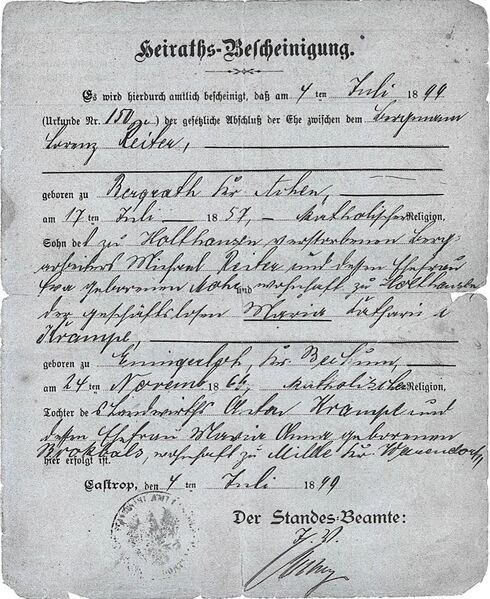 Heiraths-Bescheinigung.
Es wird hierdurch amtlich bescheinigt, daß am 4 ten Juli 1899
(Urkunde Nr. 150) der gesetzliche Abschluß der Ehe zwischen dem Bergmann
Lorenz Reiter,
geboren zu Bergrath Kr. Achen,
am 17 ten Juli 1857, katholischer Religion,
Sohn des zu Holthausen verstorbenen Berg-
arbeiters Michael Reiter und dessen Ehefrau
geborenen und wohnhaft zu Holthausen
der geschäftslosen Maria Katharina
Krampe,
geboren zu Enningerloh, Kr. Beckum,
am 24 ten Novemb 1866, katholischer Religion,
Tochter des Landwirths Anton Krampe und
dessen Ehefrau Maria Anna geborenen
Brokbals, wohnhaft zu Milte Kr. Warendorf,
hier erfolgt ist.
Castrop, den 4 ten Juli 1899
Der Standes-Beamte:
J. V.